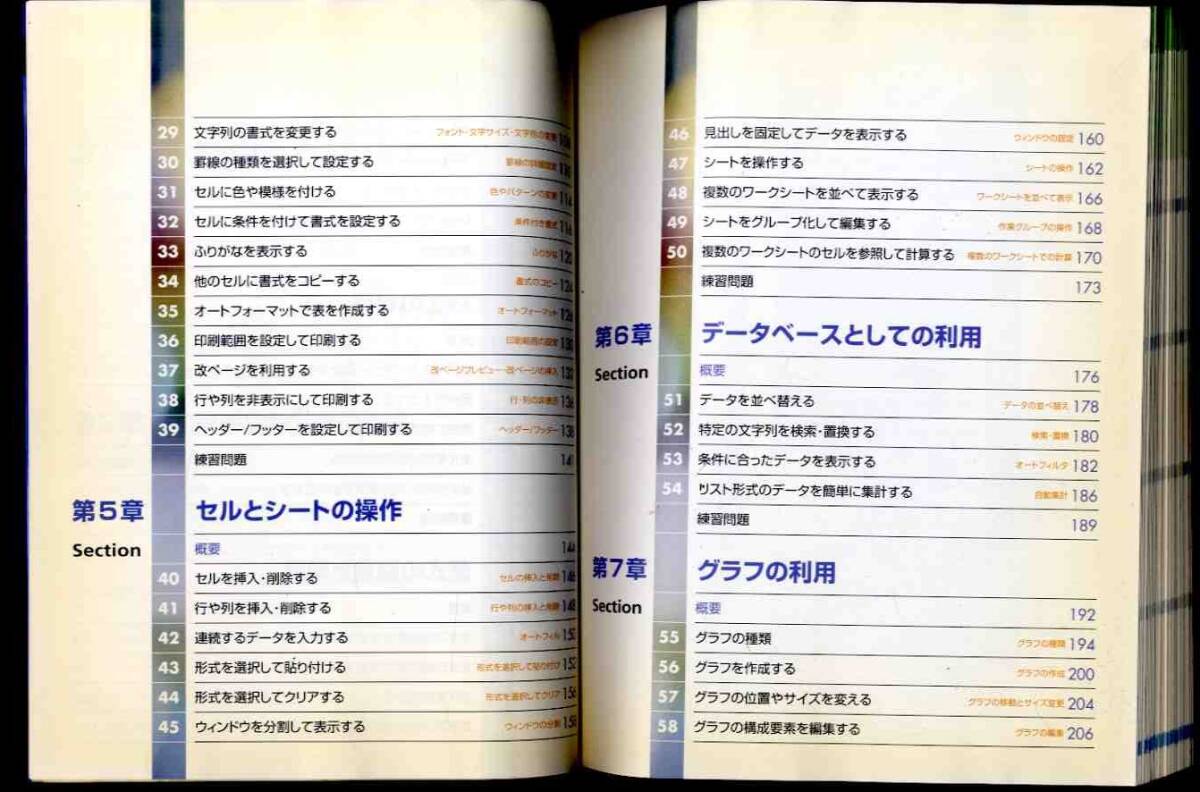 29 文字列の書式を変更する フォント・文字サイズ・文字色の変更
30 罫線の種類を選択して設定する 罫線の詳細設定 110
31 セルに色や模様を付ける 色やパターンの変更 114
32 セルに条件を付けて書式を設定する 条件付き書式 116
33 ふりがなを表示する ふりがな 120
34 他のセルに書式をコピーする 書式のコピー 124
35 オートフォーマットで表を作成する オートフォーマット 126
36 印刷範囲を設定して印刷する 印刷範囲の設定 130
37 改ページを利用する 改ページプレビュー・改ページの挿入 132
38 行や列を非表示にして印刷する 行・列の非表示 136
39 ヘッダー/フッターを設定して印刷する ヘッダー/フッター 138
練習問題 141
第5章 セルとシートの操作
Section
概要 144
40 セルを挿入・削除する セルの挿入と削除 146
41 行や列を挿入・削除する 行や列の挿入と削除 148
42 連続するデータを入力する オートフィル 150
43 形式を選択して貼り付ける 形式を選択して貼り付け 152
44 形式を選択してクリアする 形式を選択してクリア 156
45 ウィンドウを分割して表示する ウィンドウの分割 158
46 見出しを固定してデータを表示する ウィンドウの固定 160
47 シートを操作する シートの操作 162
48 複数のワークシートを並べて表示する ワークシートを並べて表示 166
49 シートをグループ化して編集する 作業グループの操作 168
50 複数のワークシートのセルを参照して計算する 複数のワークシートでの計算 170
練習問題 173
第6章 データベースとしての利用
Section
概要 176
51 データを並べ替える データの並べ替え 178
52 特定の文字列を検索・置換する 検索・置換 180
53 条件に合ったデータを表示する オートフィルタ 182
54 リスト形式のデータを簡単に集計する 自動集計 186
練習問題 189
第7章 グラフの利用
Section
概要 192
55 グラフの種類 グラフの種類 194
56 グラフを作成する グラフの作成 200
57 グラフの位置やサイズを変える グラフの移動とサイズ変更 204
58 グラフの構成要素を編集する グラフの編集 206